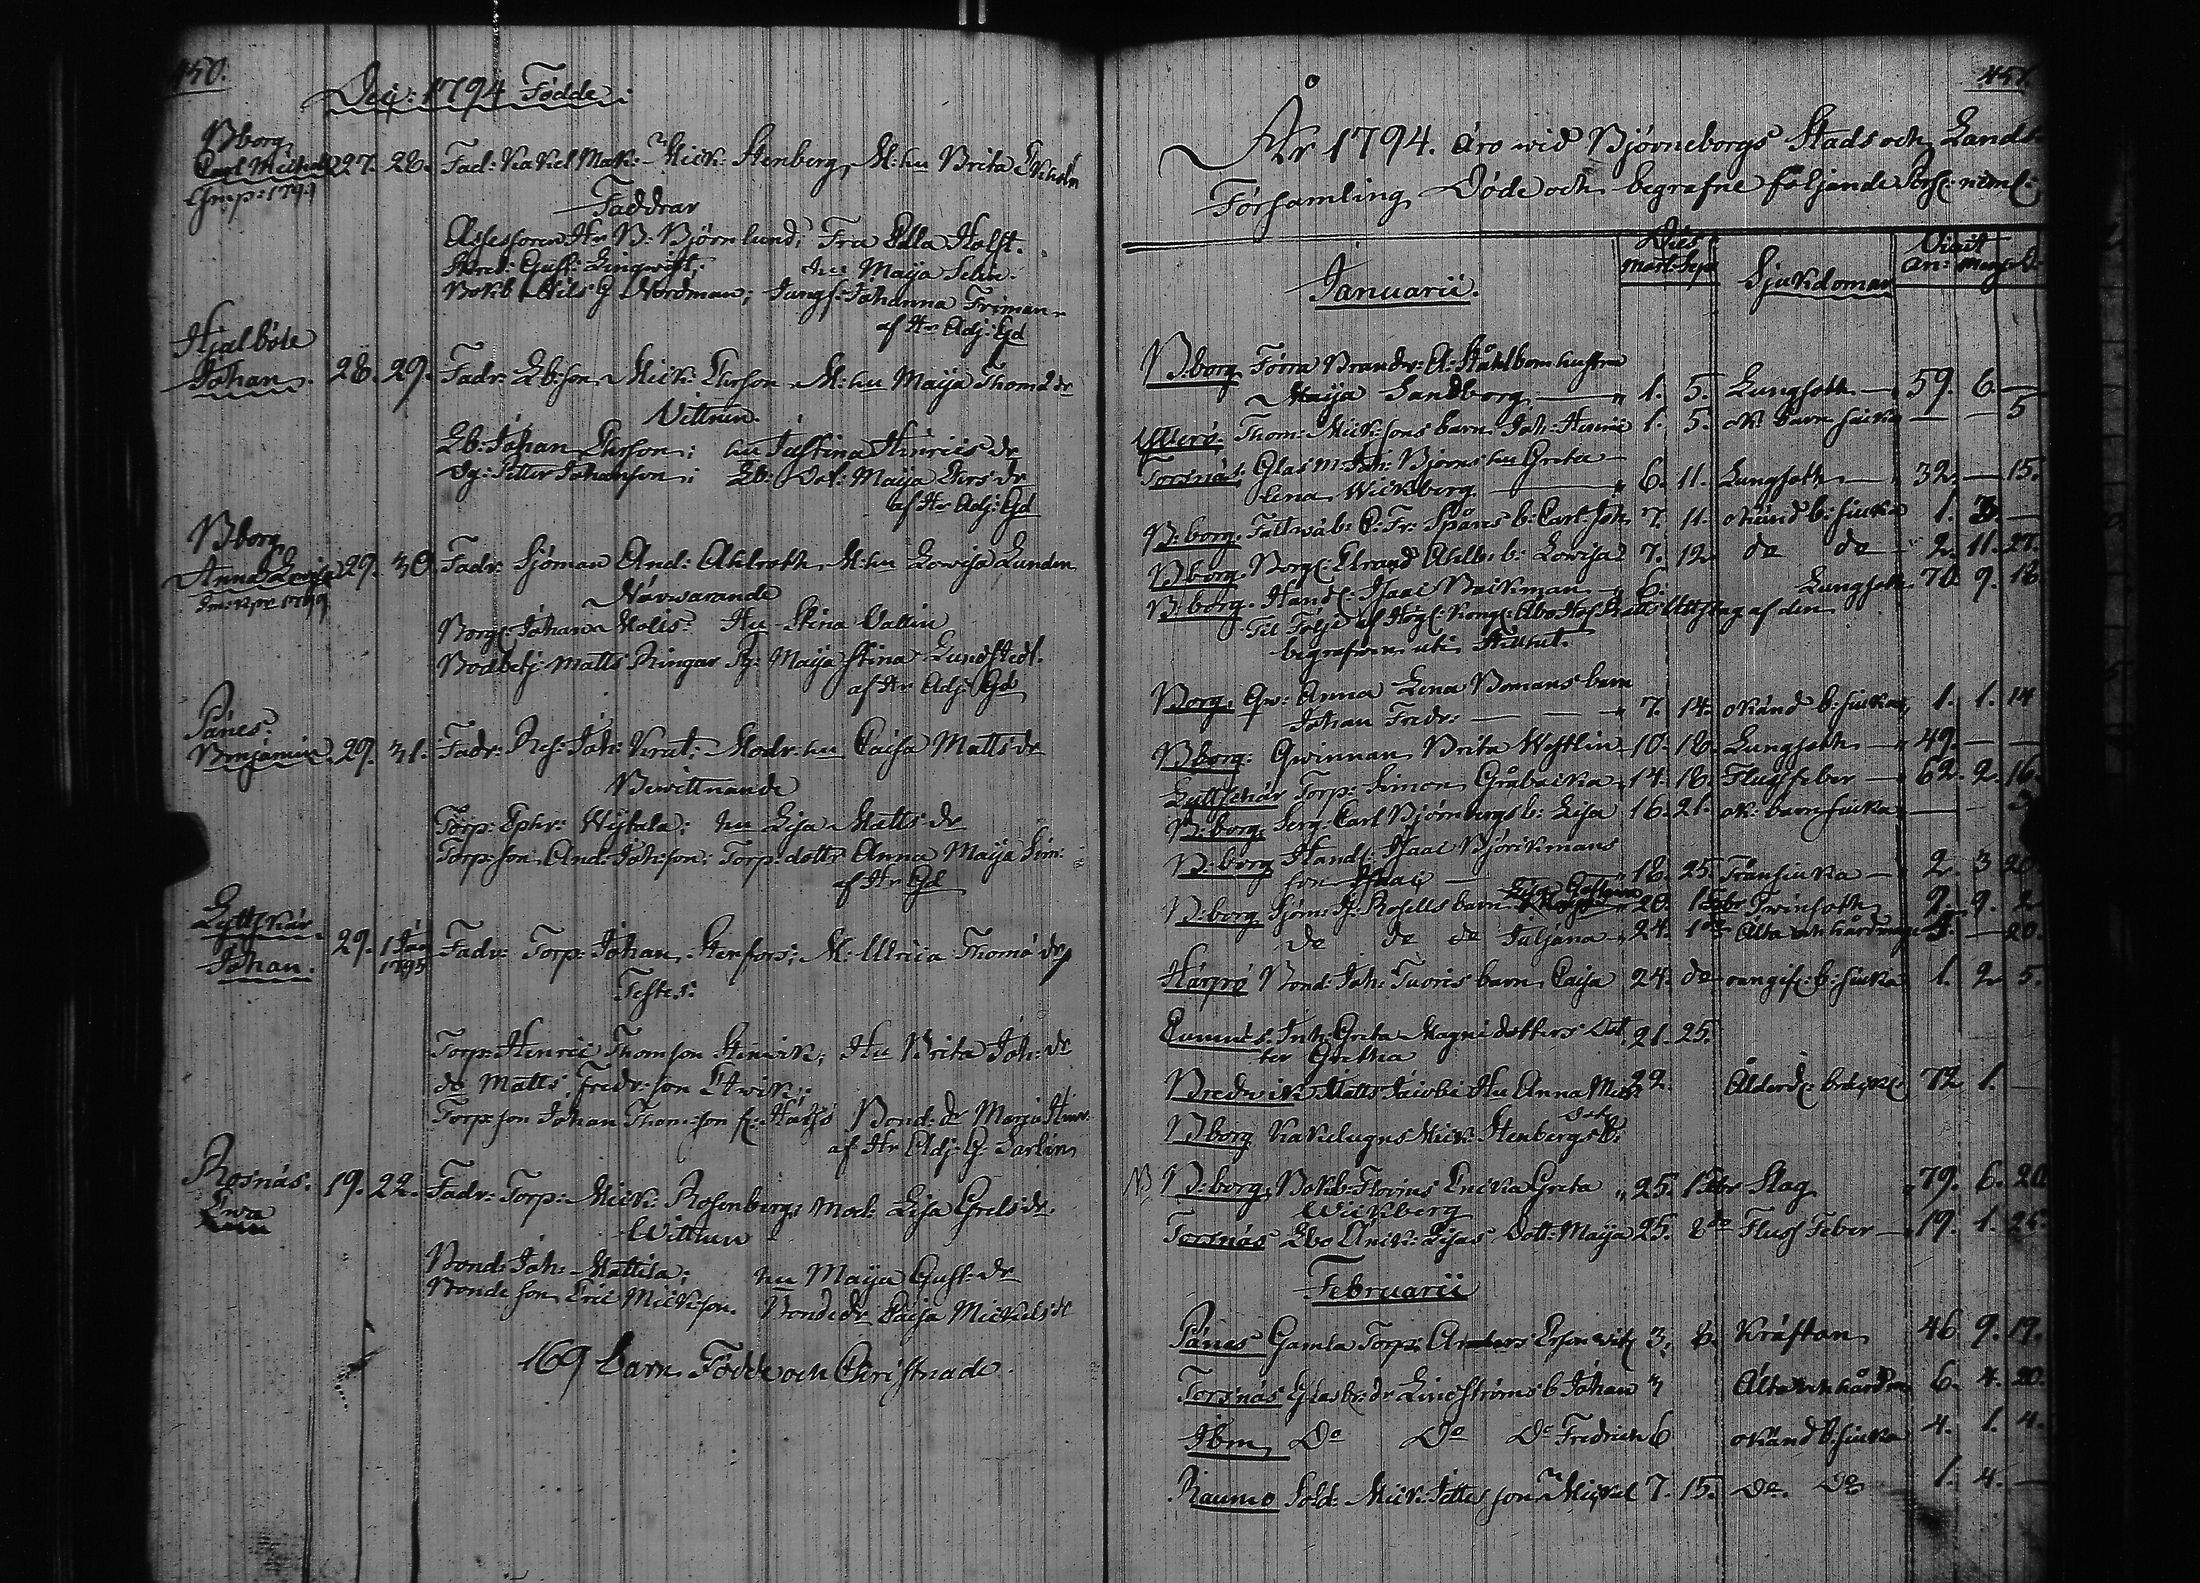 450.
Dec: 1794 Födde
Bborg
Carl Michael 27. 28. Fad: Kakel Mak: Mick: Stenberg, M: hu Brita Ekholm
Faddrar
Assessoren Hr B: Björnlund; Fru Ulla Holst.
Gust: Lingqvist; hu Maija Selin
Bokb Nils G Nordman; Jungf: Johanna Friman
af Hr Adj: Gd
Hjalböle
Johan. 28. 29. Fadr: Lb:son Mick: Ersson M: hu Maija Thom dr
Vittnen
Lb: Johan Ersson; hu Justina Hinrics dr
Dg: Petter Johansson; Lb: Dot: Maija Ers dr
af Hr Adj: Gd
Bborg
Anna Lovisa 29. 30. Fadr: Sjöman And: Ahlroth M: hu Lovisa Lunden
Närvarande
Borg: Johan Molis: Hu Stina Vallin
Bodbetj: Matts Ringar Pg: Maija Stina Lundstedt.
af Hr Adj: Gd
Pånes:
Benjamin. 29. 31. Fadr: Joh: Krut: Modr: hu Caisa Matts dr
Bewittnande
Torp: Ephr: Wistala: hu Lisa Matts dr
Torp: son And: Joh:son; Torp: dottr Anna Maija Sim:
af Hr Gd
Lyttskär.
Johan. 29. 1 Jan 1795 Fadr: Torp: Johan Stenfors; M: Ulrica Thomæ dr
Testes:
Torp: Henric Thomson Stenvik; Hu Brita Joh: dr
do Matts Fredr:son
Torp: son Johan Thom:son Bond: dr Maria Henr:
af Hr Adj: G: Sarlin
Rosnäs. 19. 22. Fadr: Torp: Mick: Rosenberg; Mod: Lisa Grels dr
Ewa
Wittnen
Bond: Joh: Mattila; hu Maija Gust: dr
Bonde son Eric Mick:son. Bonde dr Caisa Mickels dr
169 barn Födde och Christnade.
451.
År 1794. äro wid Björneborgs Stads och Lands
Församling Döde och begrafne följande Pers: neml:
Dies Mort: Sep: Sjukdomar Vixit an: mens: d:
Januarii.
Bborg Förra Brandv: A: Ståhlbom hustru
Maija Sandborg 1. 5. Lungsott 59. 6.
Ytterö. Thom: Mick:sons barn Joh: Henric 1. 5. ok: barnsiuka 5
Torsnäs: Glas m: Joh: Björns hu Greta
Lena Wickberg 6. 11. Lungsott 32. 15.
B:borg. Fattwå b: C: Fr: Spåns b: Carl Joh: 7. 11. okänd b: siuka 1. 3.
Bborg Borg: Elrand Ahlb: b: Lovisa 7. 12. do do 2. 11. 27.
Bborg. Handl: Isaac Backman 6. Lungsott 70. 9. 18.
Til Följe af Högl: Kongl: Åbo Hof Rätts Utslag af den
begrafwen uti Stillhet.
Borg. Qv: Anna Lena Bomans barn
Johan Fredr: 7. 14. okänd b: siuka 1. 1. 14
Bborg: Qwinnan Brita Westlin 10. 18. Lungsott 49.
Lyttskär Torp: Simon Gråbacka 14. 18. Flussfeber 62. 2. 16.
B:borg: Serg: Carl Björnbergs b: Lisa 16. 21. ok: barnsiuka 3
B:borg Handl: Isaac Björkmans
son Isaac 18. 25. Trånsiuka 2. 3. 20
B:borg Sjöm: Rosells barn 20. 1 Febr Twinsoth 2. 9. 2
do do do Juliana 24. 1 do Älta och hårdmage 3. 20.
Härpö Bond: Joh: Tuoris barn Caisa 24. do oangif: b: siuka 1. 2. 5.
Inh: Greta Magni dotters dot
ter Gretha 21. 25.
Bredwik Matts Jacobs: Hu Anna Mick 22. Ålderd: bräckl: 72 1.
dotr
Bborg Kakelugns Mick: Stenbergs b:
NB B:borg Bokb: Florins Enka Greta 25. 1 Febr Slag 79. 6. 20
Wickberg
Torsnäs Ebo Änk: Lisas Dott: Maija 25. 2 do Fluss Feber 19. 1. 25.
Februarii
Pånes Gamla Torp: Anders Ersson 3. 8. Kräftan 46 9. 19.
Torsnäs Glasbr: dr Lindströms b Johan 3 Älta och hårdm 6. 4. 20.
Ibm Do Do Do Fredrich 6 okänd b: siuka 4. 1. 4.
Raumo Sold: Mick: Jettes son Mickel 7. 15. Do. Do 1. 4.